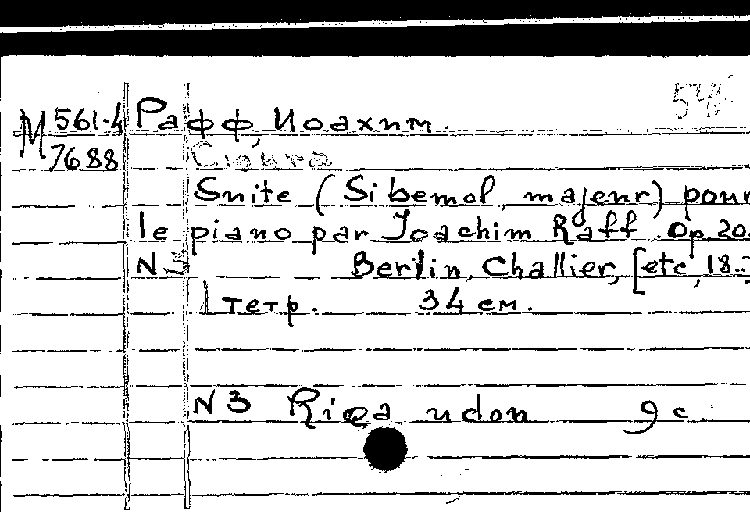 М 561-4 Рафф, Иоахим.
7688 Сюита
Suite (Si bemol majeur) pour
le piano par Joachim Raff. Op. 204
N 3 Berlin, Challier, [etc, 18..]
1 тетр. 34 см.
N 3 9 с